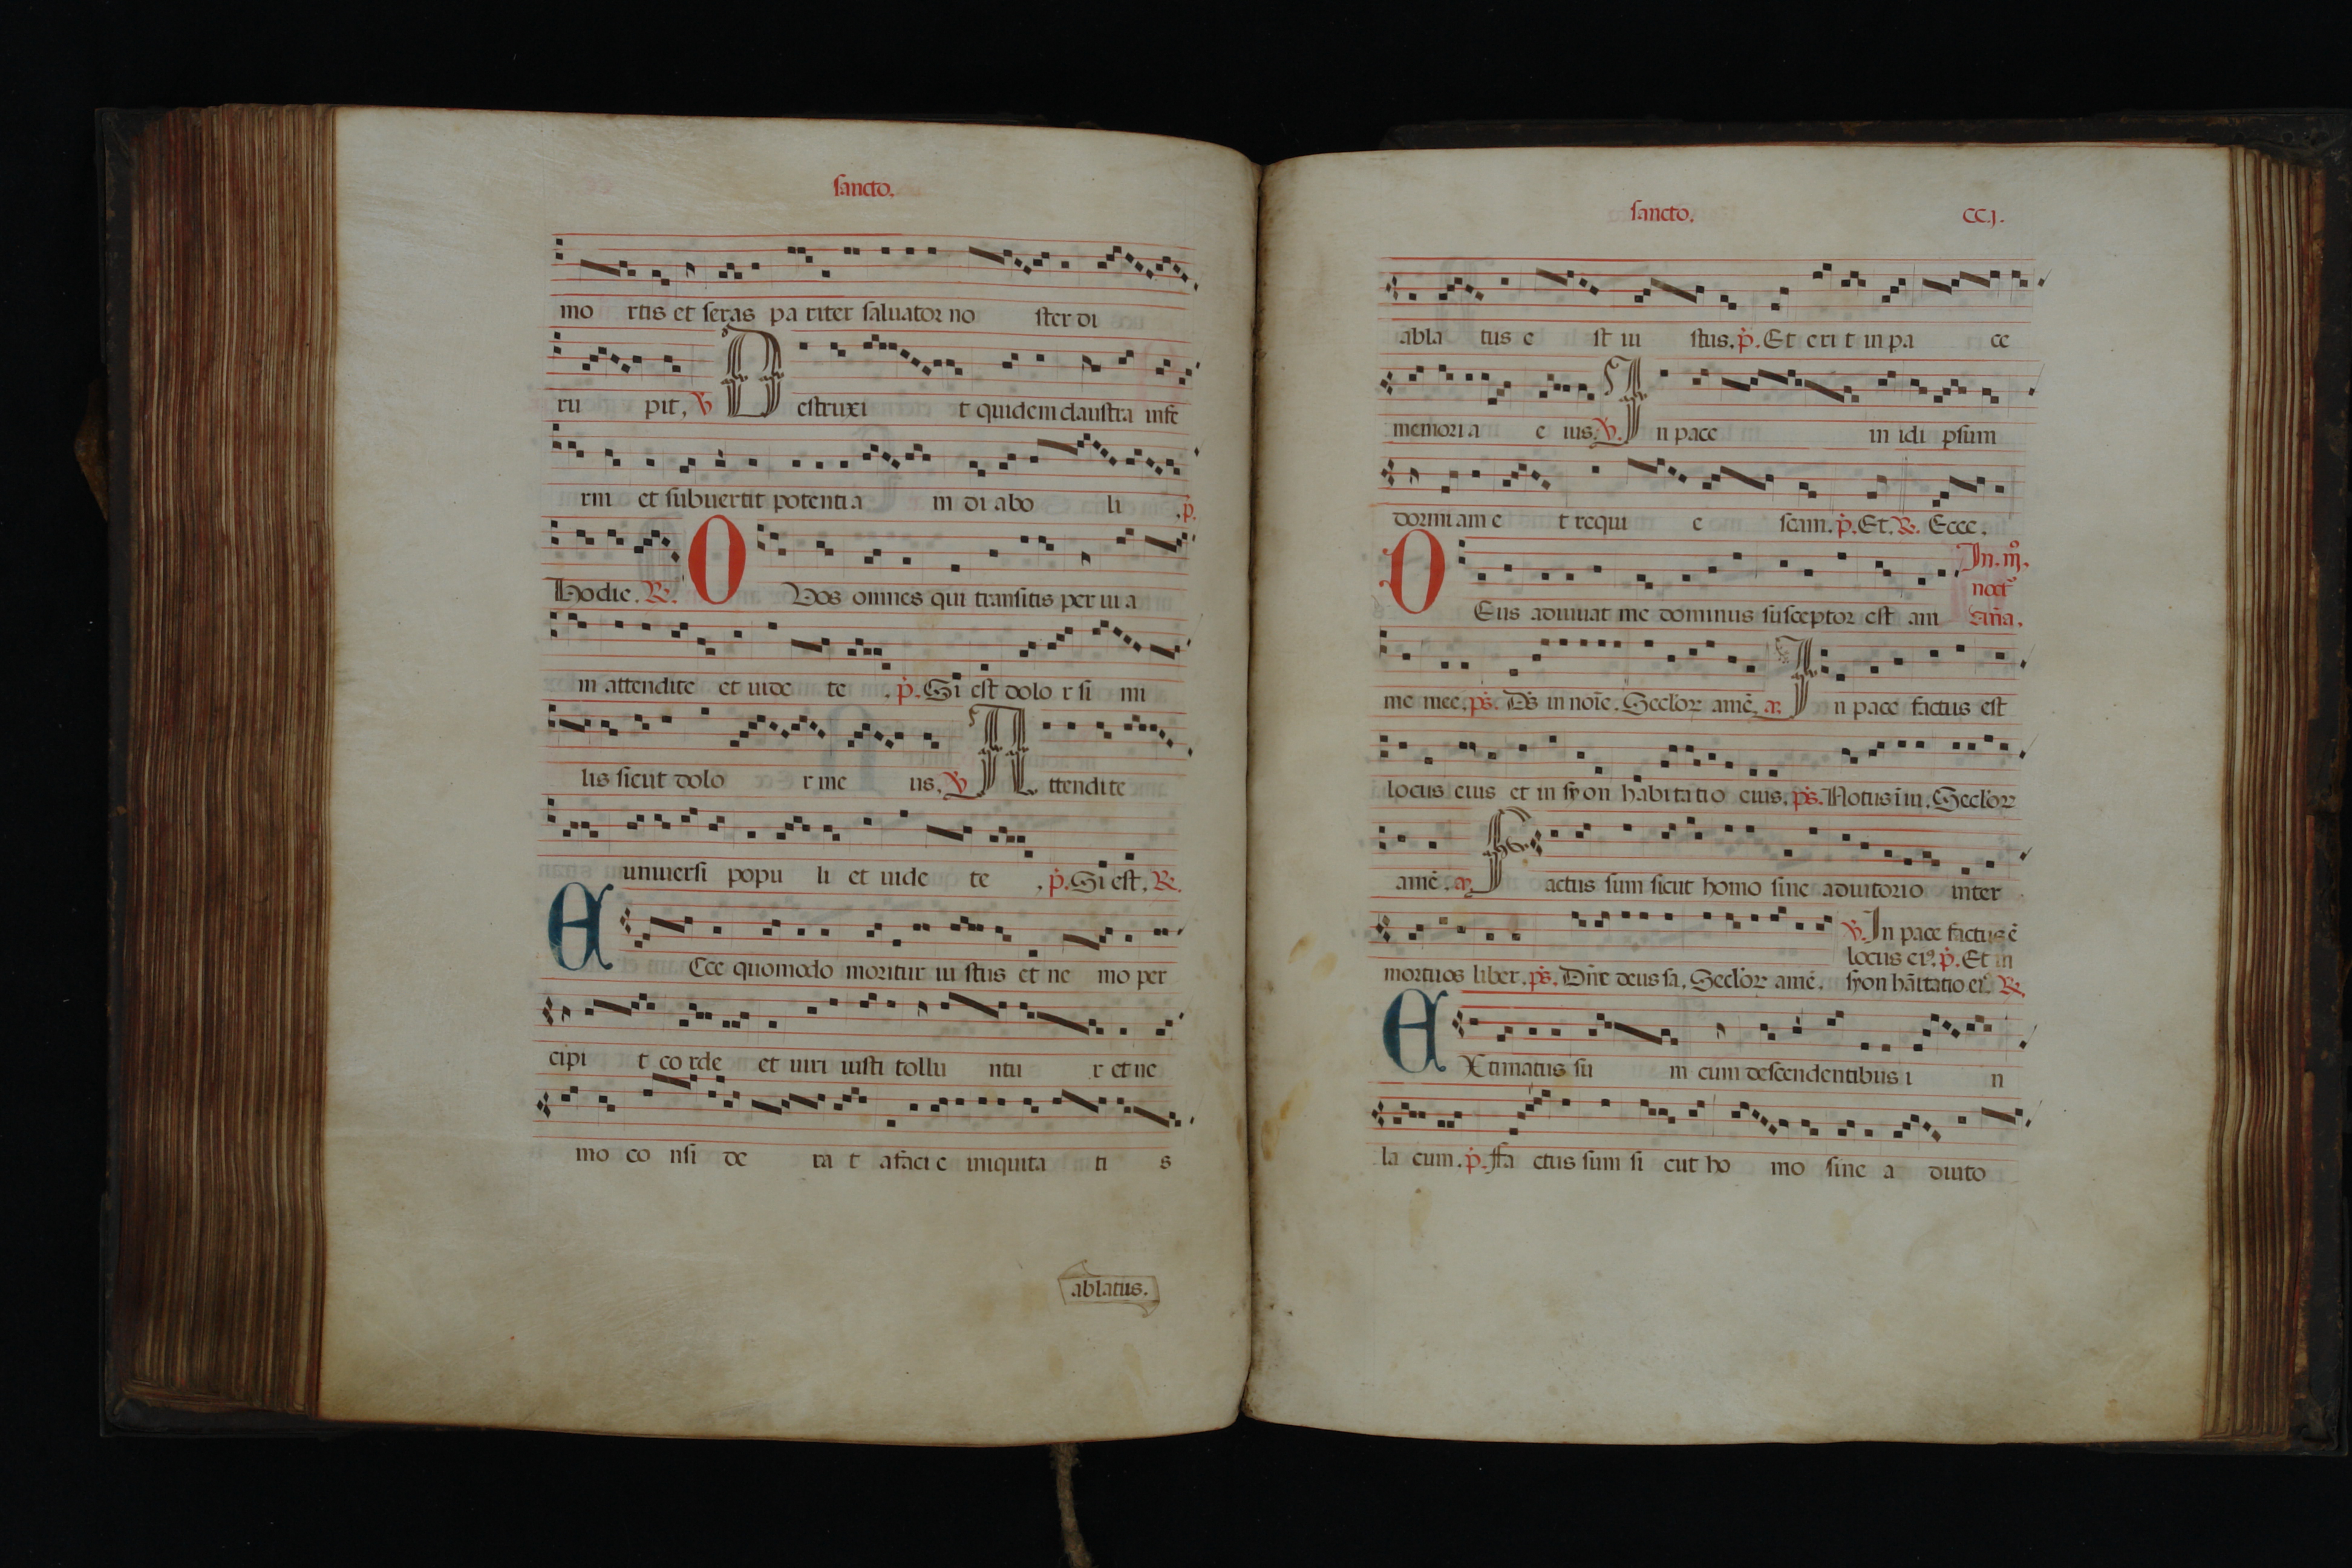 sancto.
mo rtis et seras pa riter saluator no ster di
ru pit, ℣ Destruxi t quidem claustra infe
rni et subuertit potentia m di abo li .p̄.
Hodie. ℟. O Vos omnes qui transitis per ui a
m attendite et uide te . p̄. Si est dolo r si mi
lis sicut dolo r me us. ℣ A ttendite
uniuersi popu li et uide te , p̄. Si est, ℟.
E Cce quomodo moritur iu stus et ne mo per
cipi t co rde et uiri iusti tollu ntu r et ne
mo co nsi de ra t afaci e iniquita ti s
ablatus.
sancto. CC.j.
abla tus e st iu stus. p̄. Et eri t in pa ce
memori a e ius. ℣. In pace in idi psum
dormiam e t requi e scam. p̄. Et. ℟. Ecce.
In. iij̊.
noct̄
D Eus adiuuat me dominus susceptor est ani
me mee. ps̄. Ds̄ in noīe. Seclor amē. a. In pace factus est
locus eius et in syon habitatio eius. ps̄. Notus ī iu. Seclor
amē. a. F actus sum sicut homo sine adiutorio inter
mortuos liber. ps̄. Dn̄e deus sa. Seclor amē.
℣. In pace factus ē
locus ei⁹. p̄. Et in
syon hāitatio ei⁹. ℟.
E Xtimatus su m cum descendentibus i n
la cum. p̄. ffa ctus sum si cut ho mo sine a diuto